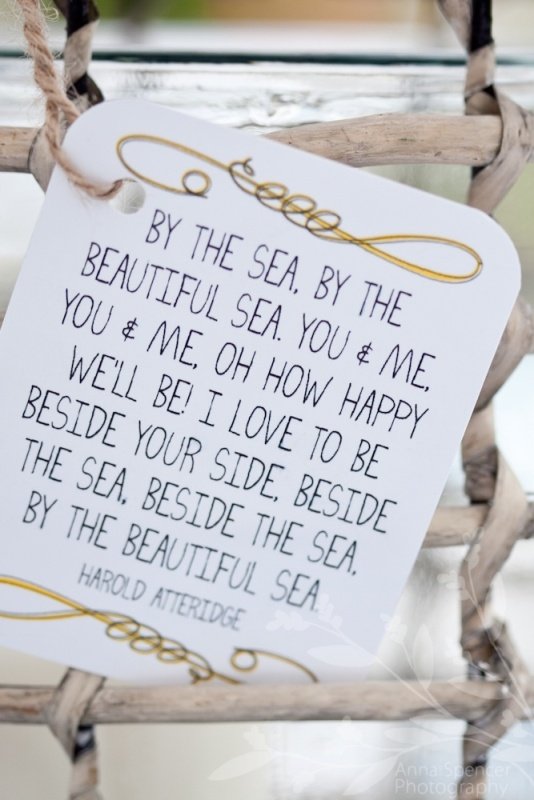 BY THE SEA, BY THE
BEAUTIFUL SEA. YOU & ME,
YOU & ME, OH HOW HAPPY
WE'LL BE! I LOVE TO BE
BESIDE YOUR SIDE, BESIDE
THE SEA, BESIDE THE SEA,
BY THE BEAUTIFUL SEA.
HAROLD ATTERIDGE
Anna Spencer
Photography